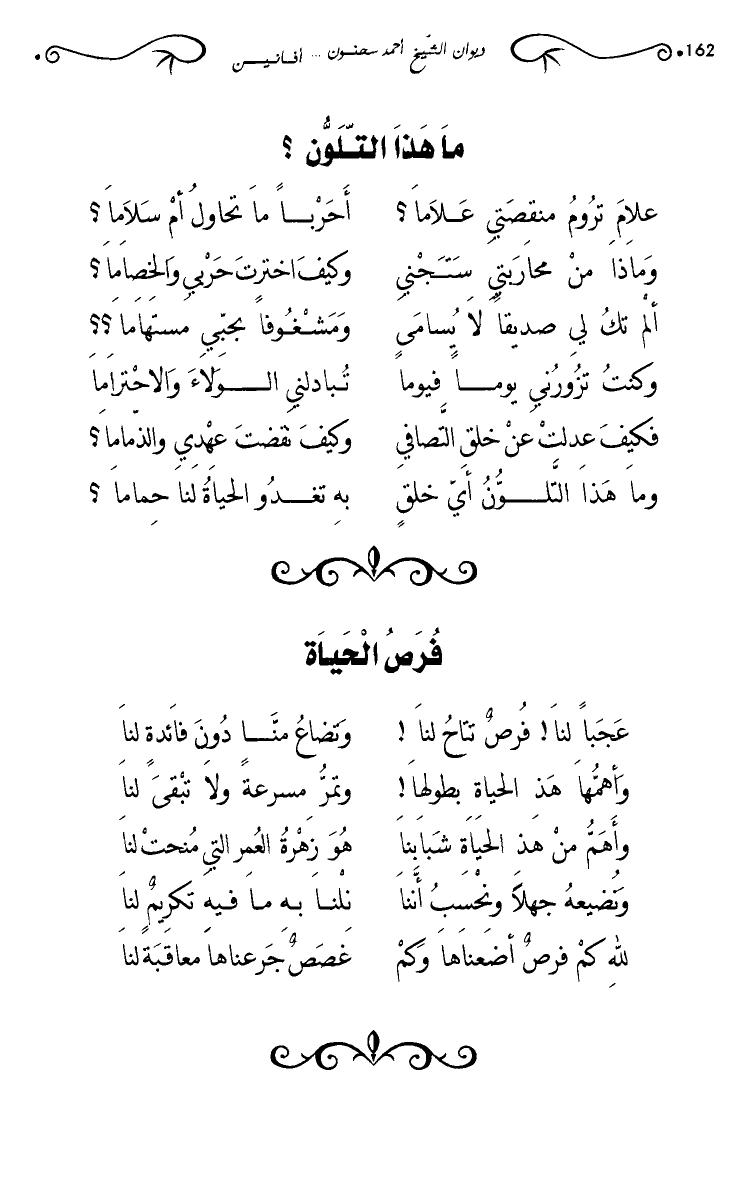 162• ديوان الشيخ أحمد سحنون ... أفانين •
ما هَذا التّلَوُّن ؟
علامَ ترُومُ منقصَتي عَلاما ؟ أَحَرْباً ما تحاولُ أمْ سَلاَما ؟
وَماذا منْ محاربتي سَتَجْني وكيفَ اخترتَ حَرْبي والخصاما ؟
ألمْ تكُ لي صديقاً لا يُسامَى وَمَشْغُوفاً بحبّي مستهاما ؟؟
وكنتُ تزُورُني يوماً فيوماً تُبادلني الوَلاءَ وَالاحْتراما
فكيفَ عدلتْ عنْ خلقِ التَّصافي وكيفَ نقضتَ عهْدي والذّماما ؟
وما هَذا التَّلوُّنُ أيّ خلقٍ به تغدُو الحياةُ لنا حماما ؟
فُرَصُ الْحَيَاة
عَجَباً لنا ! فُرصٌ تتاحُ لنا ! وَتضاعُ منَّا دُونَ فائدةٍ لنا
وأهمُّها هَذ الحياة بطولها ! وتمرُّ مسرعةً ولا تبْقىَ لنا
وأَهَمُّ منْ هذ الحياة شبابنا هوَ زهْرةُ العُمر التي مُنحتْ لنا
وَنُضيعهُ جهلاً ونحْسبُ أنَّنا نلْنا به ما فيهِ تكريمٌ لنا
للهِ كمْ فرصٌ أضعناها وكمْ غصَصٌ جَرعناها معاقبَةً لنا